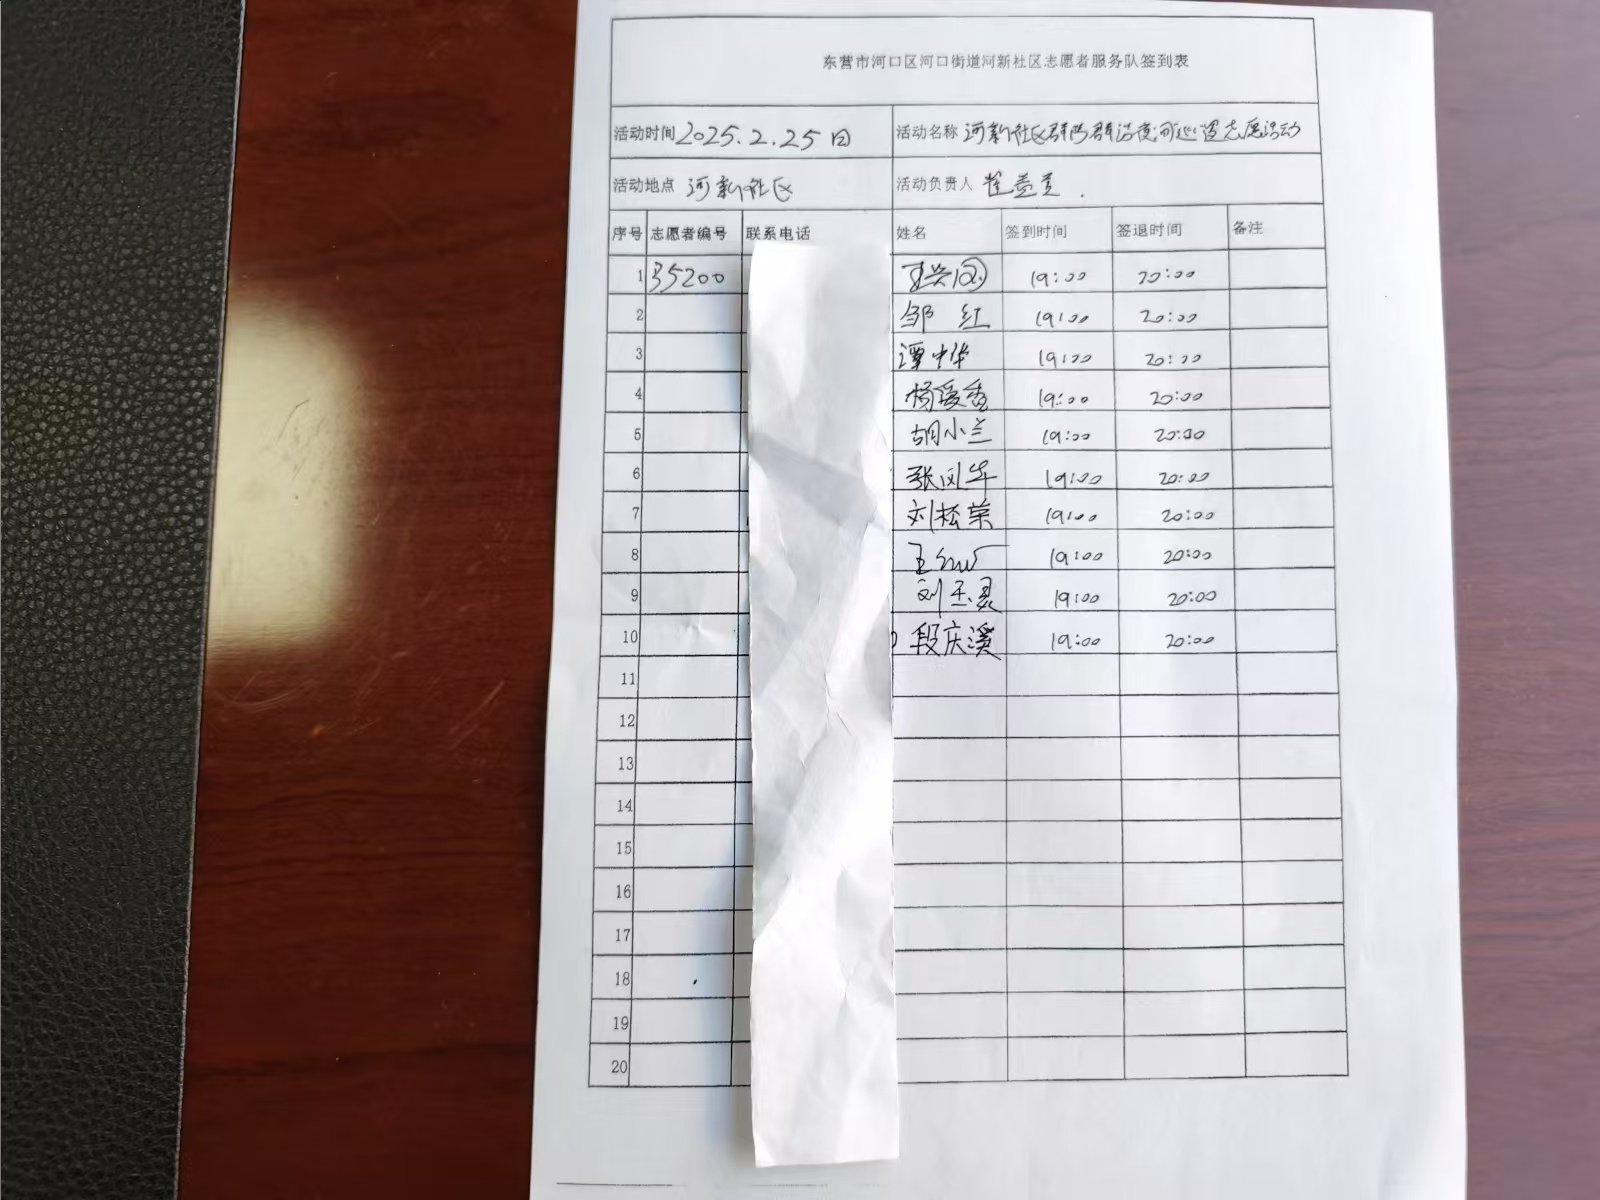 东营市河口区河口街道河新社区志愿者服务队签到表
活动时间 2025.2.25日 活动名称 河新社区群防群治夜间巡逻志愿活动
活动地点 河新社区 活动负责人 崔益兰.
序号 志愿者编号 联系电话 姓名 签到时间 签退时间 备注
1 35200 19:00 20:00
2 邹 红 19:00 20:00
3 谭中华 19:00 20:00
4 杨爱香 19:00 20:00
5 胡小兰 19:00 20:00
6 张风华 19:00 20:00
7 刘松荣 19:00 20:00
8 19:00 20:00
9 19:00 20:00
10 段庆溪 19:00 20:00
11
12
13
14
15
16
17
18
19
20